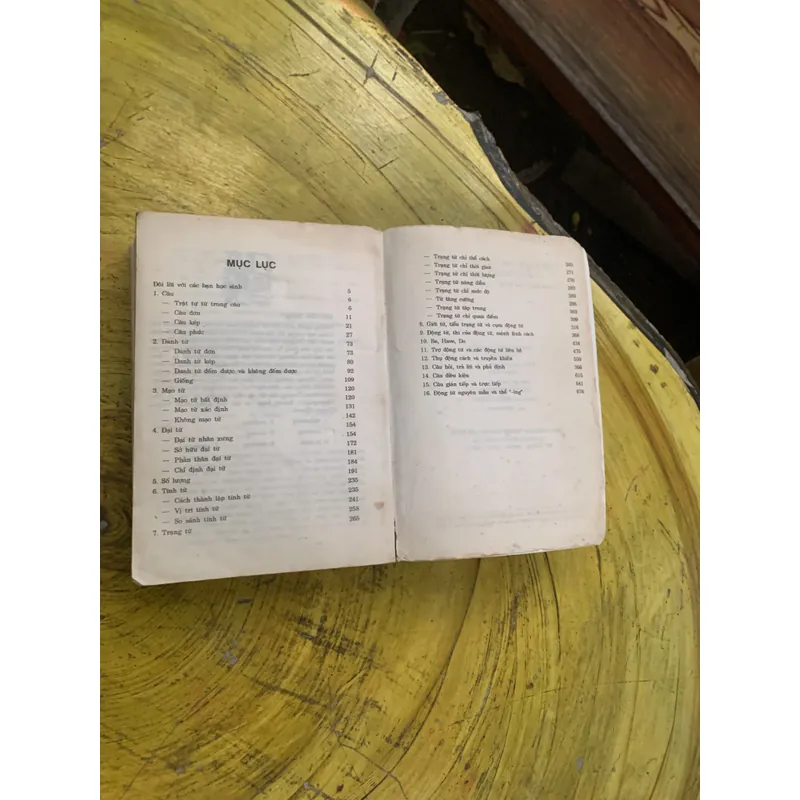 MỤC LỤC
Đôi lời với các bạn học sinh 5
1. Câu 6
— Trật tự từ trong câu 6
— Câu đơn 11
— Câu kép 21
— Câu phức 27
2. Danh từ 73
— Danh từ đơn 73
— Danh từ kép 80
— Danh từ đếm được và không đếm được 92
— Giống 109
3. Mạo từ 120
— Mạo từ bất định 120
— Mạo từ xác định 131
— Không mạo từ 142
4. Đại từ 154
— Đại từ nhân xưng 154
— Sở hữu đại từ 172
— Phản thân đại từ 181
— Chỉ định đại từ 184
5. Số lượng 191
6. Tính từ 235
— Cách thành lập tính từ 235
— Vị trí tính từ 241
— So sánh tính từ 258
7. Trạng từ 265
— Trạng từ chỉ thể cách
— Trạng từ chỉ thời gian
— Trạng từ chỉ thời lượng 271
— Trạng từ năng diễn
— Trạng từ chỉ mức độ
— Từ tăng cường
— Trạng từ tập trung
— Trạng từ chỉ quan điểm
8. Giới từ, tiểu trạng từ và cụm động từ
9. Động từ, thì của động từ, mệnh lệnh cách
10. Be, Have, Do
11. Trợ động từ và các động từ liên hệ 476
12. Thụ động cách và truyền khiến
13. Câu hỏi, trả lời và phủ định
14. Câu điều kiện 615
15. Câu gián tiếp và trực tiếp 641
16. Động từ nguyên mẫu và thể "-ing"